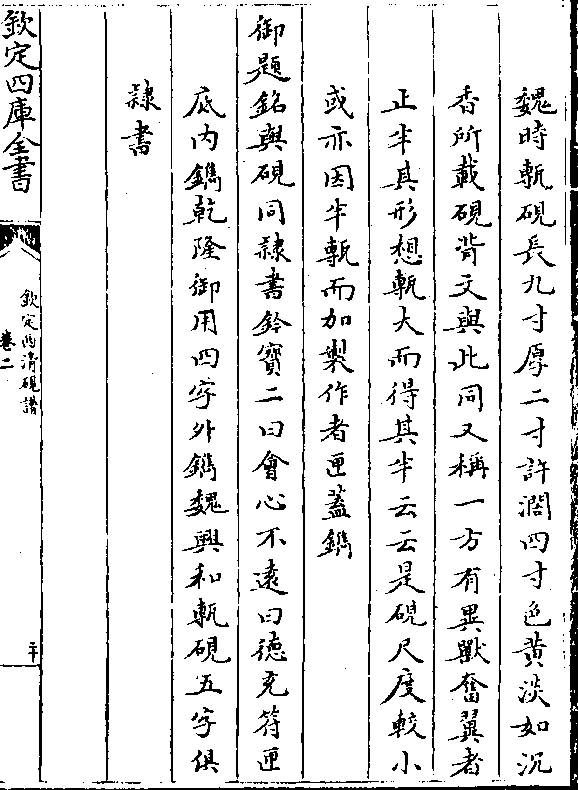 魏時甎硯長九寸厚二寸許濶四寸色黄淡如沉
香所載硯背文與此同又稱一方有異獸奮翼者
正半其形想甎大而得其半云云是硯尺度較小
或亦因半甎而加製作者匣蓋鐫
御題銘與硯同隸書鈐寳二曰會心不逺曰德充符匣
底内鐫乾隆御用四字外鐫魏興和甎硯五字俱
隸書
欽定四庫全書
欽定西清硯譜
卷二
二十